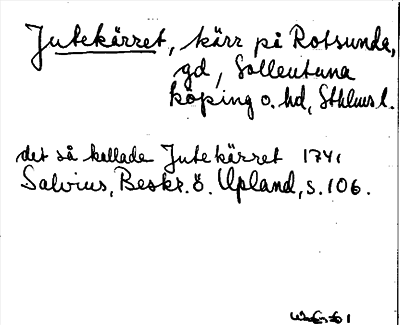 Jutekärret, kärr på Rotsunda,
gd, Sollentuna
köping o. hd, Sthlms l.
det så kallade Jutekärret 1741
Salvius, Beskr. ö. Upland, s. 106.